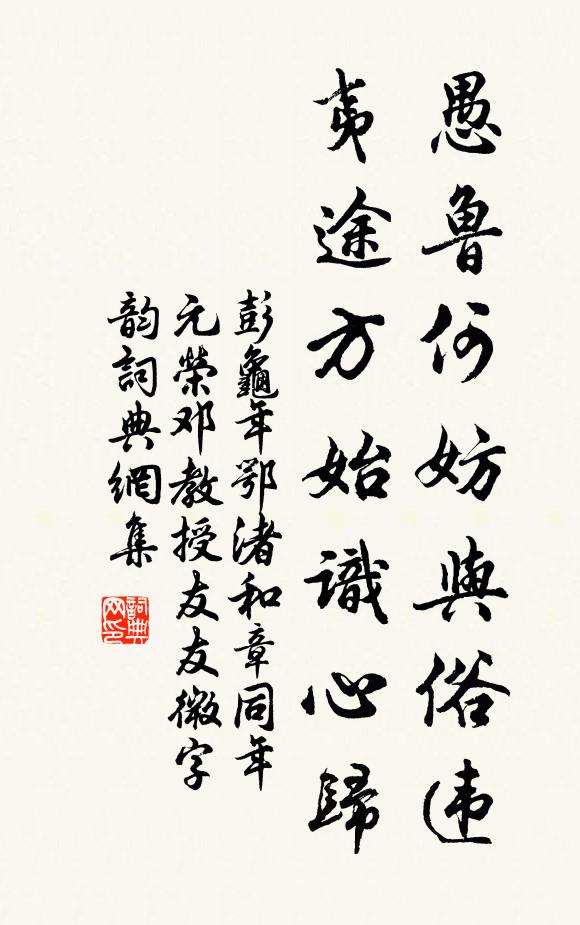 愚魯何妨與俗違
夷途方始識心歸
彭龜年鄂渚和章同年
元榮邓教授友友徽字
韵詞典網集
詞典网印